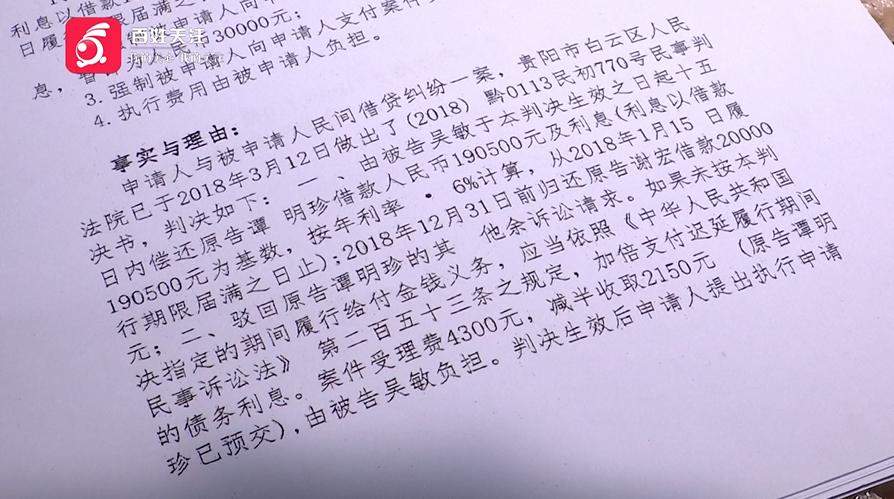 利息以借款
日履 限届满之
息, 30000元;
百姓关注
3. 强制被申请人向申请人支付案件
4. 执行费用由被申请人负担。
事实与理由:
申请人与被申请人民间借贷纠纷一案, 贵阳市白云区人民
法院已于2018年3月12日做出了(2018) 黔0113民初770号民事判
决书, 判决如下: 一、由被告吴敏于本判决生效之日起十五
日内偿还原告谭 明珍借款人民币190500元及利息(利息以借款
190500元为基数, 按年利率·6%计算, 从2018年1月15 日履
行期限届满之日止); 2018年12月31日前归还原告谢宏借款20000
元; 二、驳回原告谭明珍的其 他余诉讼请求。如果未按本判
决指定的期间履行给付金钱义务, 应当依照《中华人民共和国
民事诉讼法》 第二百五十三条之规定, 加倍支付迟延履行期间
的债务利息。案件受理费4300元, 减半收取2150元 (原告谭明
珍已预交), 由被告吴敏负担。判决生效后申请人提出执行申请